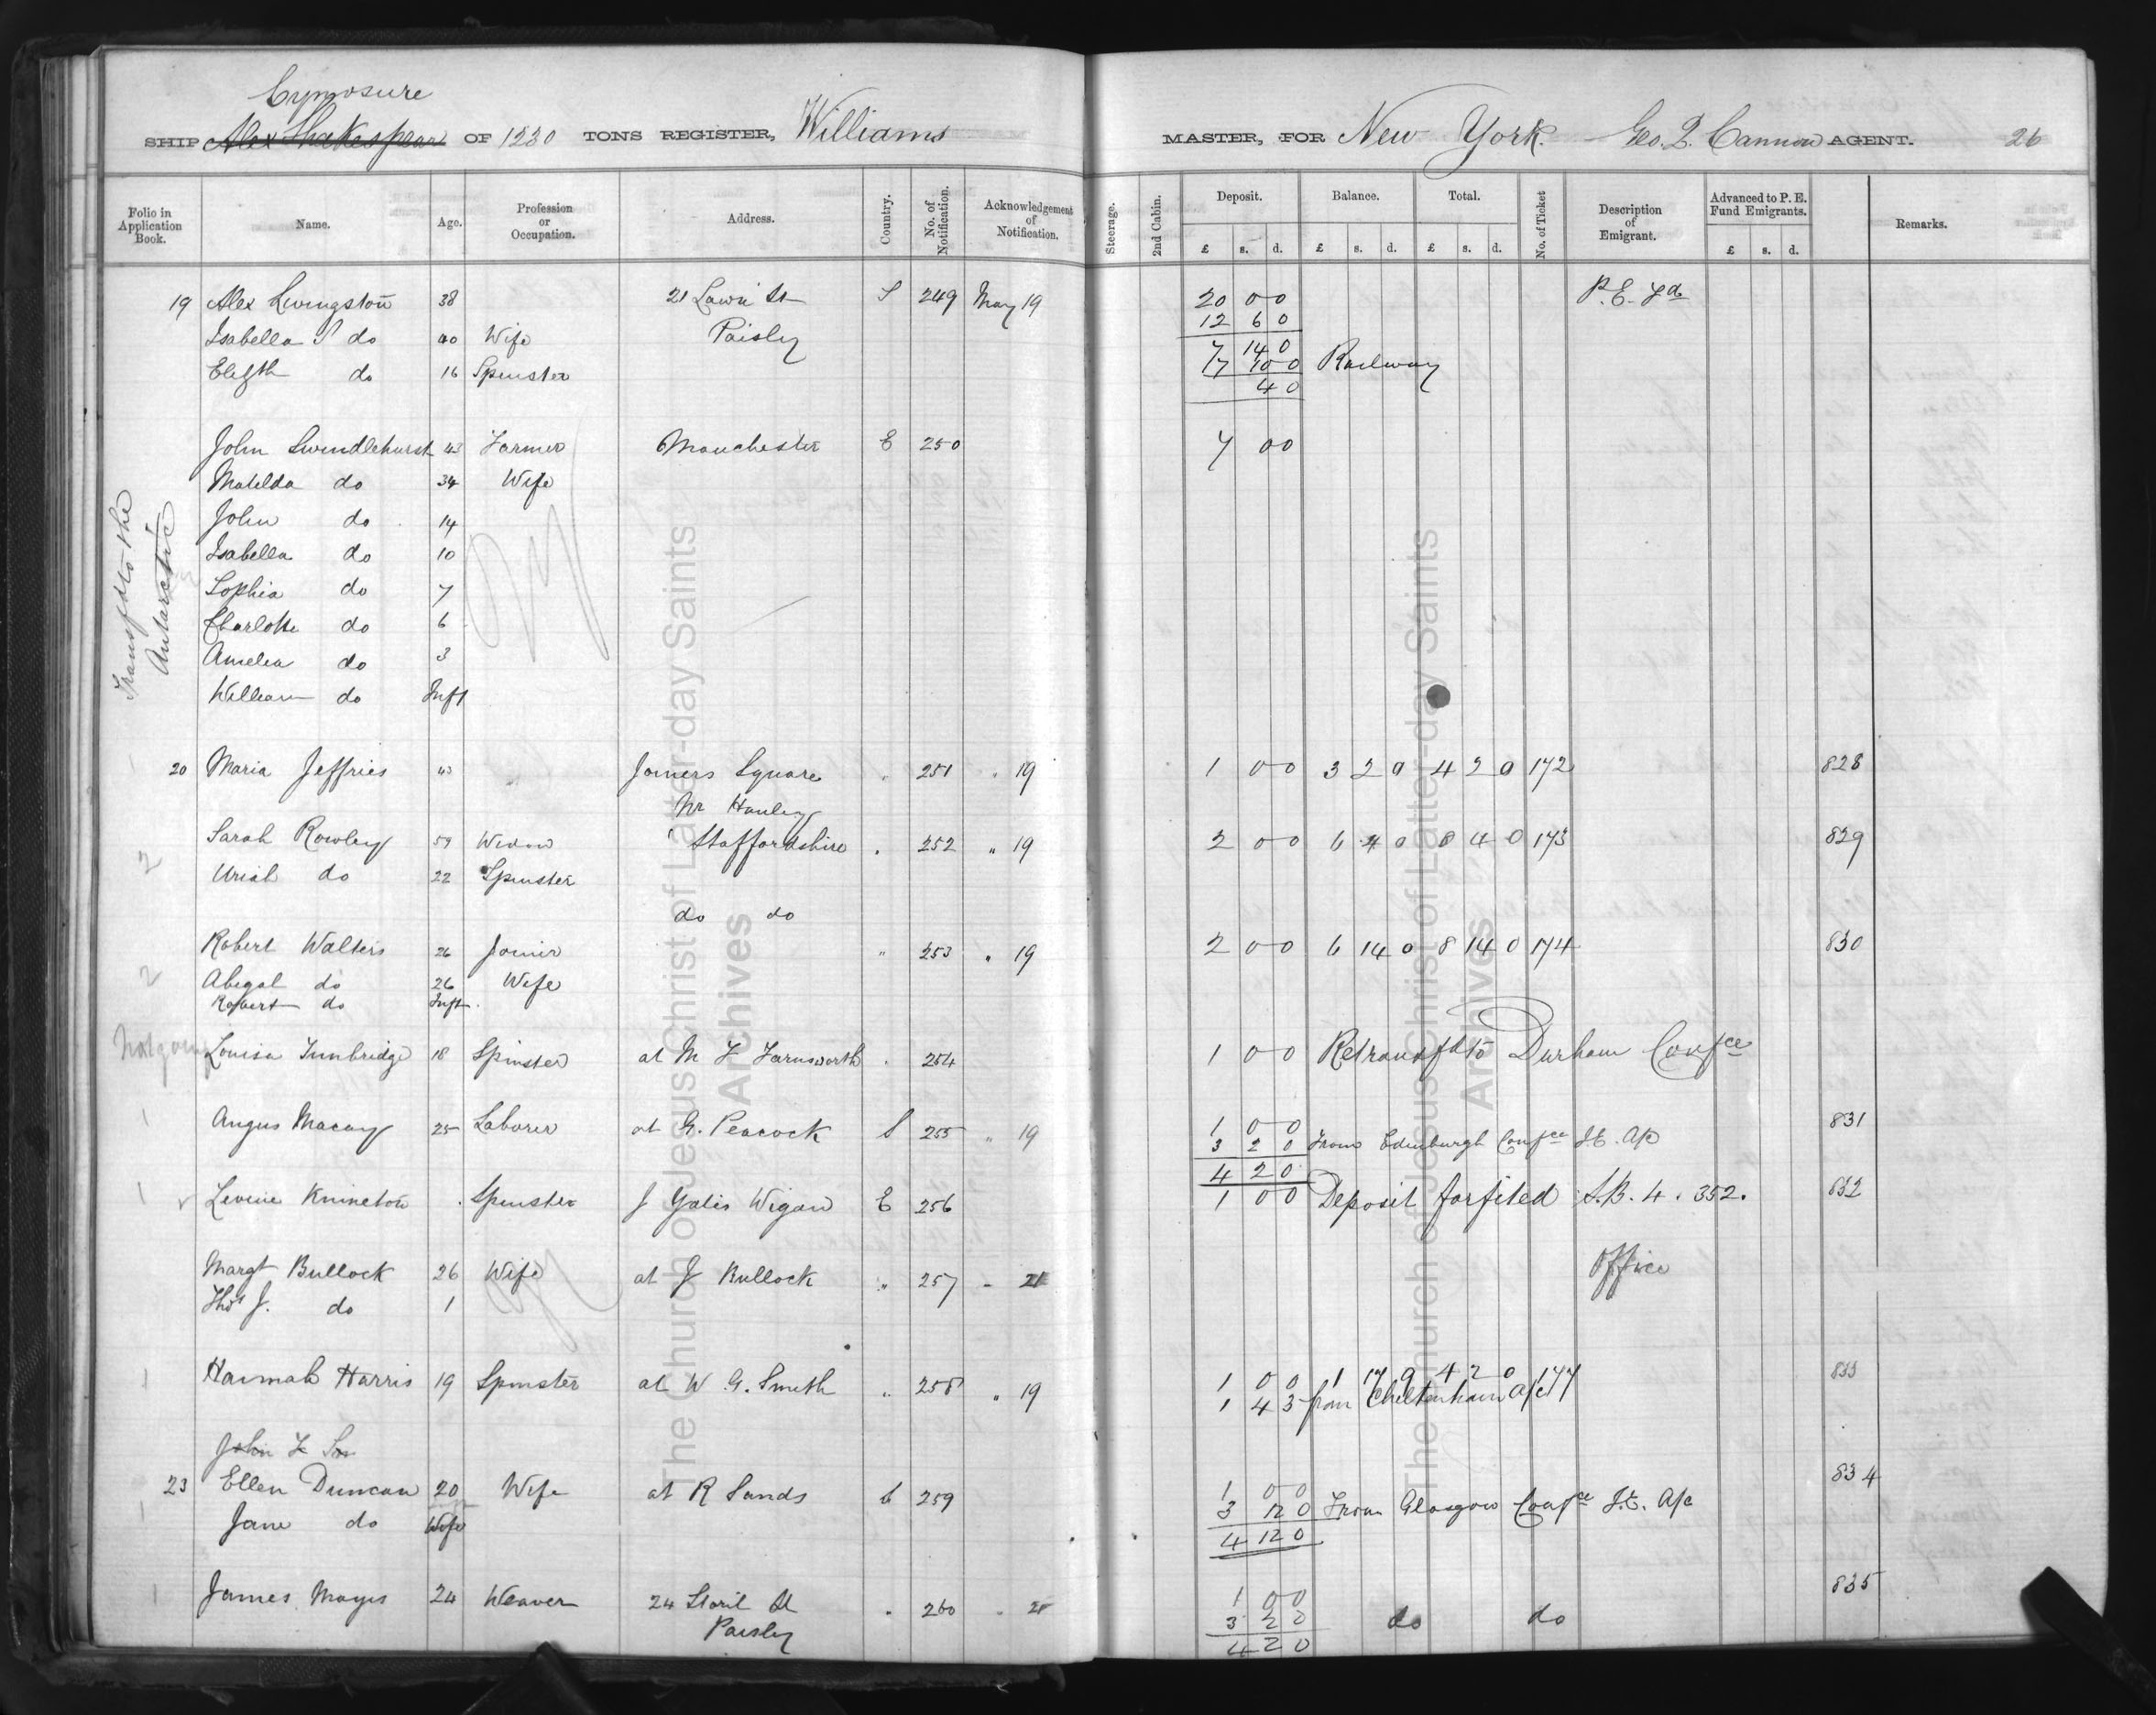 Cynosure
SHIP Alex Shakespear OF 1230 TONS REGISTER, Williams MASTER, FOR New York. Geo. Q. Cannon AGENT. 26
Folio in Application Book. Name. Age. Profession or Occupation. Address. Country. No. of Notification. Acknowledgement of Notification. Steerage. 2nd Cabin. Deposit. Balance. Total. No. of Ticket Description of Emigrant. Advanced to P. E. Fund Emigrants. Remarks.
£ s. d. £ s. d. £ s. d. £ s. d.
19 Alex Livingston 38 21 Lawn St S 249 May 19 20 0 0 P.E. Fd
12 6 0
Isabella S do 40 Wife Paisley
7 14 0
Elizth do 16 Spinster 7 10 0 Railway
4 0
John Swindlehurst 43 Farmer Manchester E 250 7 0 0
Matilda do 34 Wife
John do 14
Isabella do 10
Sophia do 7
Charlotte do 6
Amelia do 3
William do Inft
Transfd to the Antarctic
20 Maria Jeffries 43 Joiners Square " 251 " 19 1 0 0 3 2 0 4 2 0 172 828
Nr Hanley
Sarah Rowley 59 Widow Staffordshire " 252 " 19 2 0 0 6 4 0 8 4 0 173 829
2 Uriah do 22 Spinster
do do
Robert Walters 26 Joiner " 253 " 19 2 0 0 6 14 0 8 14 0 174 830
2 Abigal do 26 Wife
Robert do Inft
Not going Louisa Tunbridge 18 Spinster at M F Farnsworth " 254 1 0 0 Retransfd to Durham Confce
1 Angus Macay 25 Laborer at G. Peacock S 255 " 19 1 0 0 831
3 2 0 From Edinburgh Confce I.E. A/c
4 2 0
1 Levinie Knineton Spinster J Yates Wigan E 256 1 0 0 Deposit forfited S.B. 4. 352. 832
Margt Bullock 26 Wife at J Bullock " 257 " 21 Office
Thos J. do 1
1 Hannah Harris 19 Spinster at W. G. Smith " 258 " 19 1 0 0 1 17 9 4 2 0 177 833
1 4 3 from Cheltenham A/c
John F Son
23 Ellen Duncan 20 Wife at R Sands S 259 1 0 0 834
3 12 0 From Glasgow Confce I.E. A/c
1 Jane do Wife
4 12 0
1 James Mays 24 Weaver 24 Storil St " 260 " 21 1 0 0 835
3 2 0 do do
Paisley
4 2 0
The Church of Jesus Christ of Latter-day Saints
Archives
The Church of Jesus Christ of Latter-day Saints
Archives